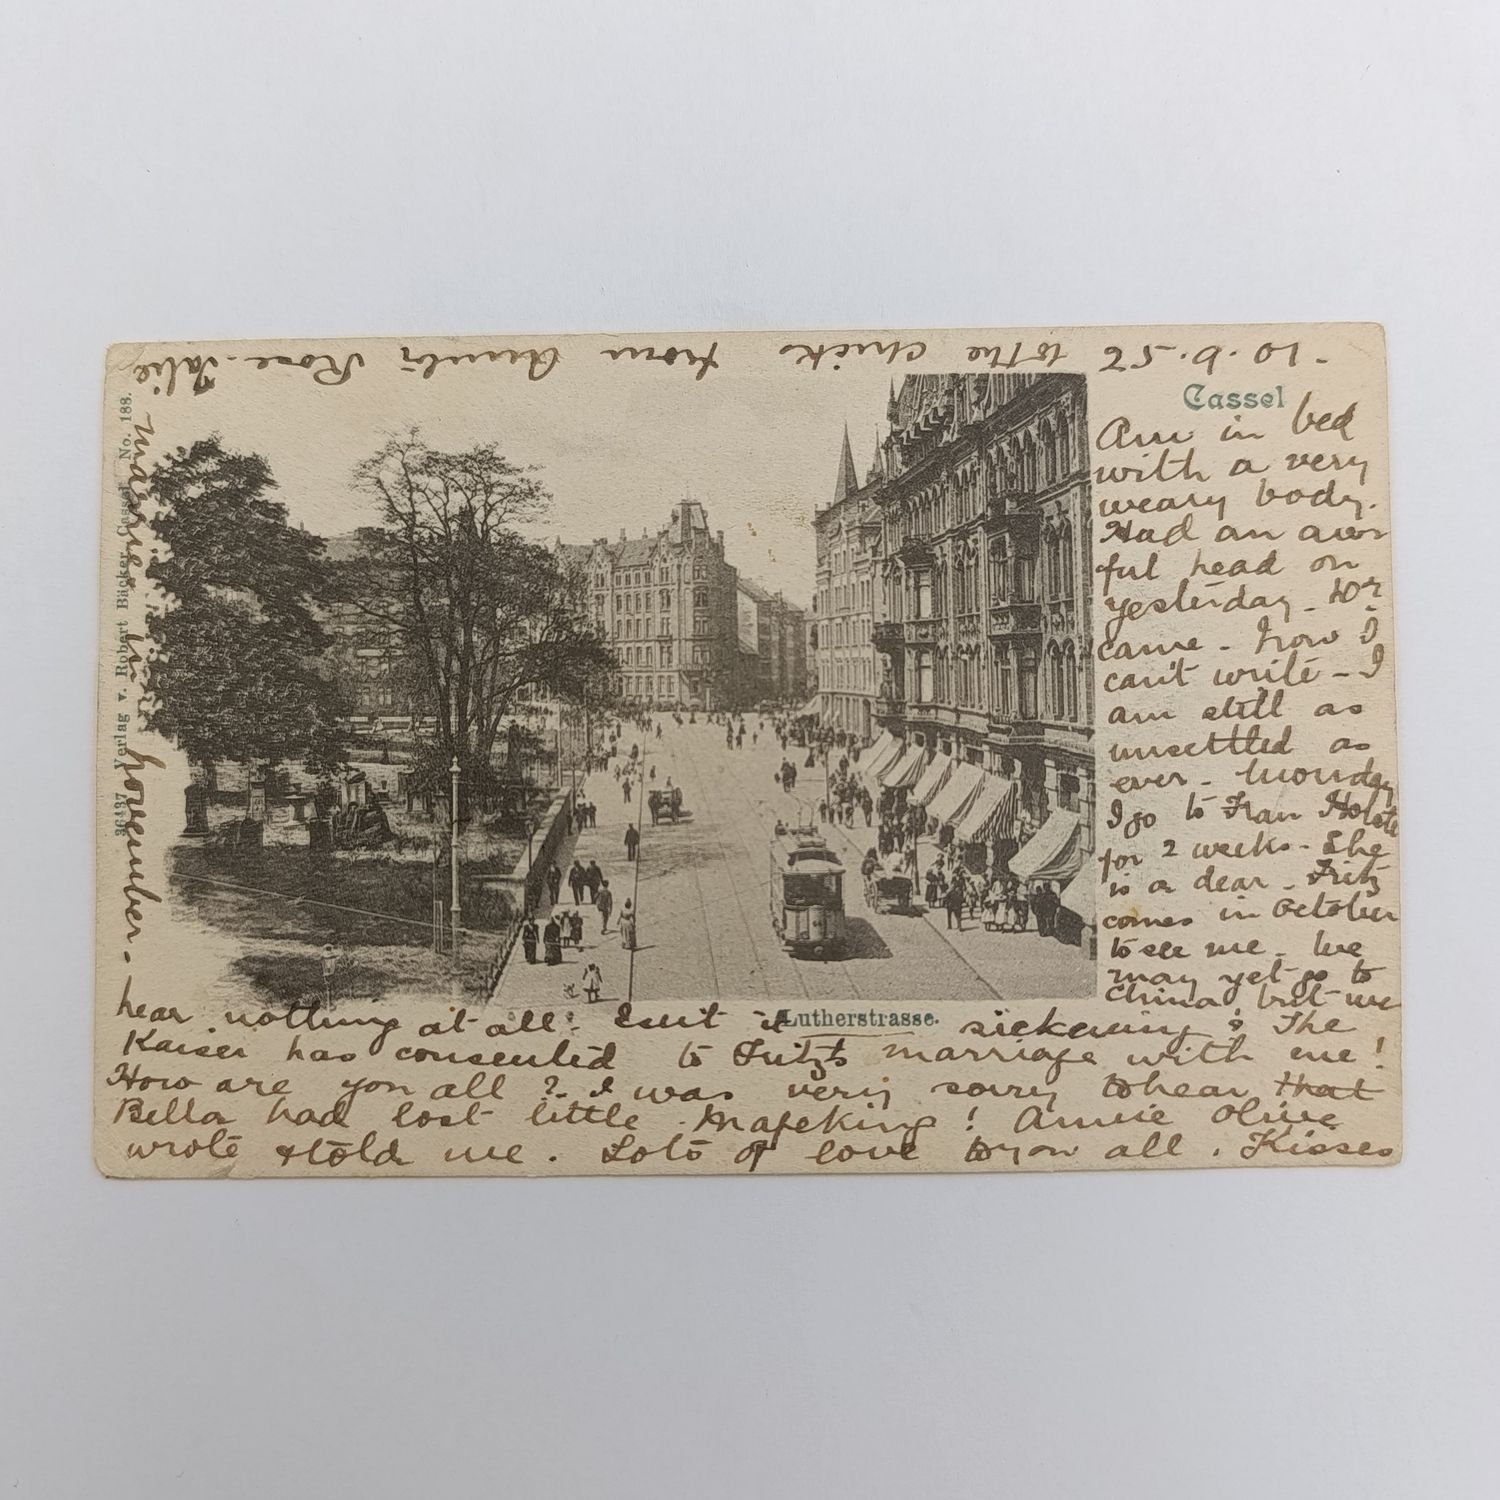 Cassel
Am in bed
with a very
weary body.
Had an aw-
ful head on
yesterday - Dr
came - how I
can't write - I
am still as
unsettled as
ever - Monday
I go to Frau
for 2 weeks - She
is a dear - Fritz
comes in October
to see me. We
may yet go to
China but we
hear nothing at all. Isn't it sickening? The
Lutherstrasse.
Kaiser has consented to Fritz's marriage with me!
How are you all? I was very sorry to hear that
Bella had lost little Mafeking! Annie Olive
wrote & told me. Lots of love to you all. Kisses
to the chicks from Aunti Rose-
married in November.
36437 Verlag v. Robert Bäcker, Cassel No. 188.